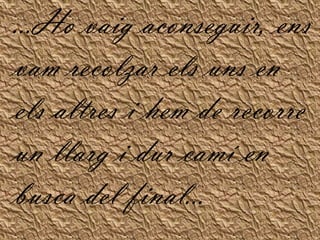 ...Ho vaig aconseguir, ens
vam recolzar els uns en
els altres i hem de recorre
un llarg i dur camí en
busca del final...